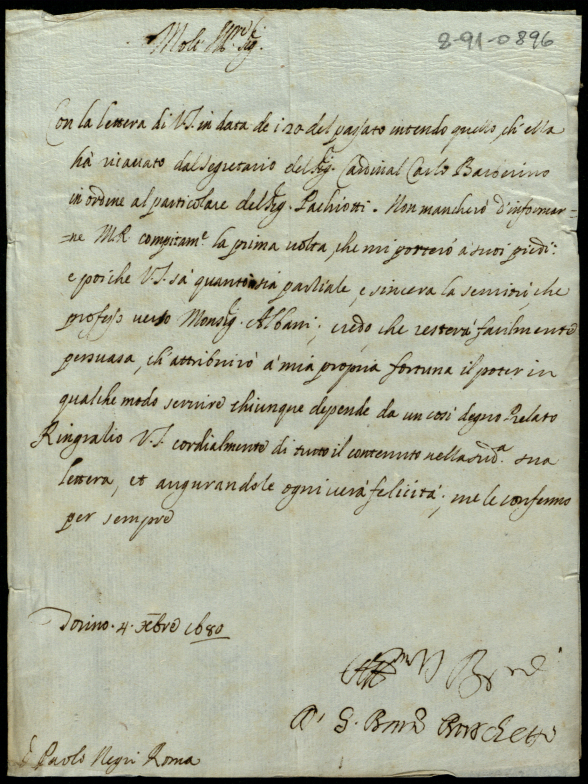 8-91-0896
Molt' Ill.re Sig.
Con la lettera di V.S. in data de i 20 del passato intendo quello, ch'ella
hà ricavato dal segretario del Sig. Cardinal Carlo Barberino
in ordine al particolare del Sig. Pachiotti. Non mancherò d'informar-
=ne M.R. compitam.te la prima volta, che mi porterò a' suoi piedi:
e poiche V.S. sà quanto sia partiale, e sincera la servitù che
professo verso Monsig. Albani; credo che resterà facilmente
persuasa, ch'attribuirò à mia propria fortuna il poter in
qualche modo servire chiunque depende da un così degno Prelato
Ringratio V.S. cordialmente di tutto il contenuto nella sud.a sua
lettera, et augurandole ogni vera felicità; me le confermo
per sempre
Torino. 4. Xbre 1680
Paolo Negri Roma